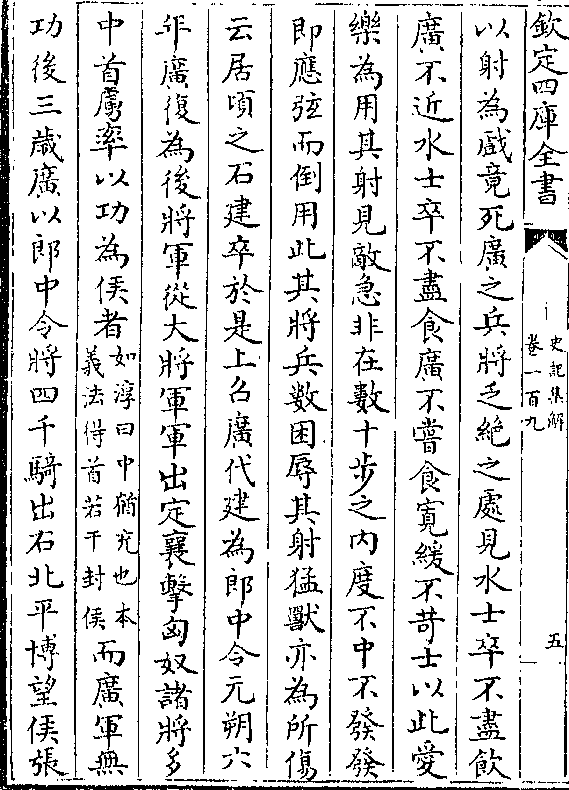 欽定四庫全書
史記集解
卷一百九
五
以射為戲竟死廣之兵將乏絶之處見水士卒不盡飲
廣不近水士卒不盡食廣不嘗食寛緩不苛士以此愛
樂為用其射見敵急非在數十步之内度不中不發發
即應弦而倒用此其將兵數困辱其射猛獸亦為所傷
云居頃之石建卒於是上召廣代建為郎中令元朔六
年廣復為後將軍從大將軍軍出定襄擊匈奴諸將多
中首虜率以功為侯者如淳曰中猶充也本義法得首若干封侯而廣軍無
功後三歲廣以郎中令將四千騎出右北平博望侯張